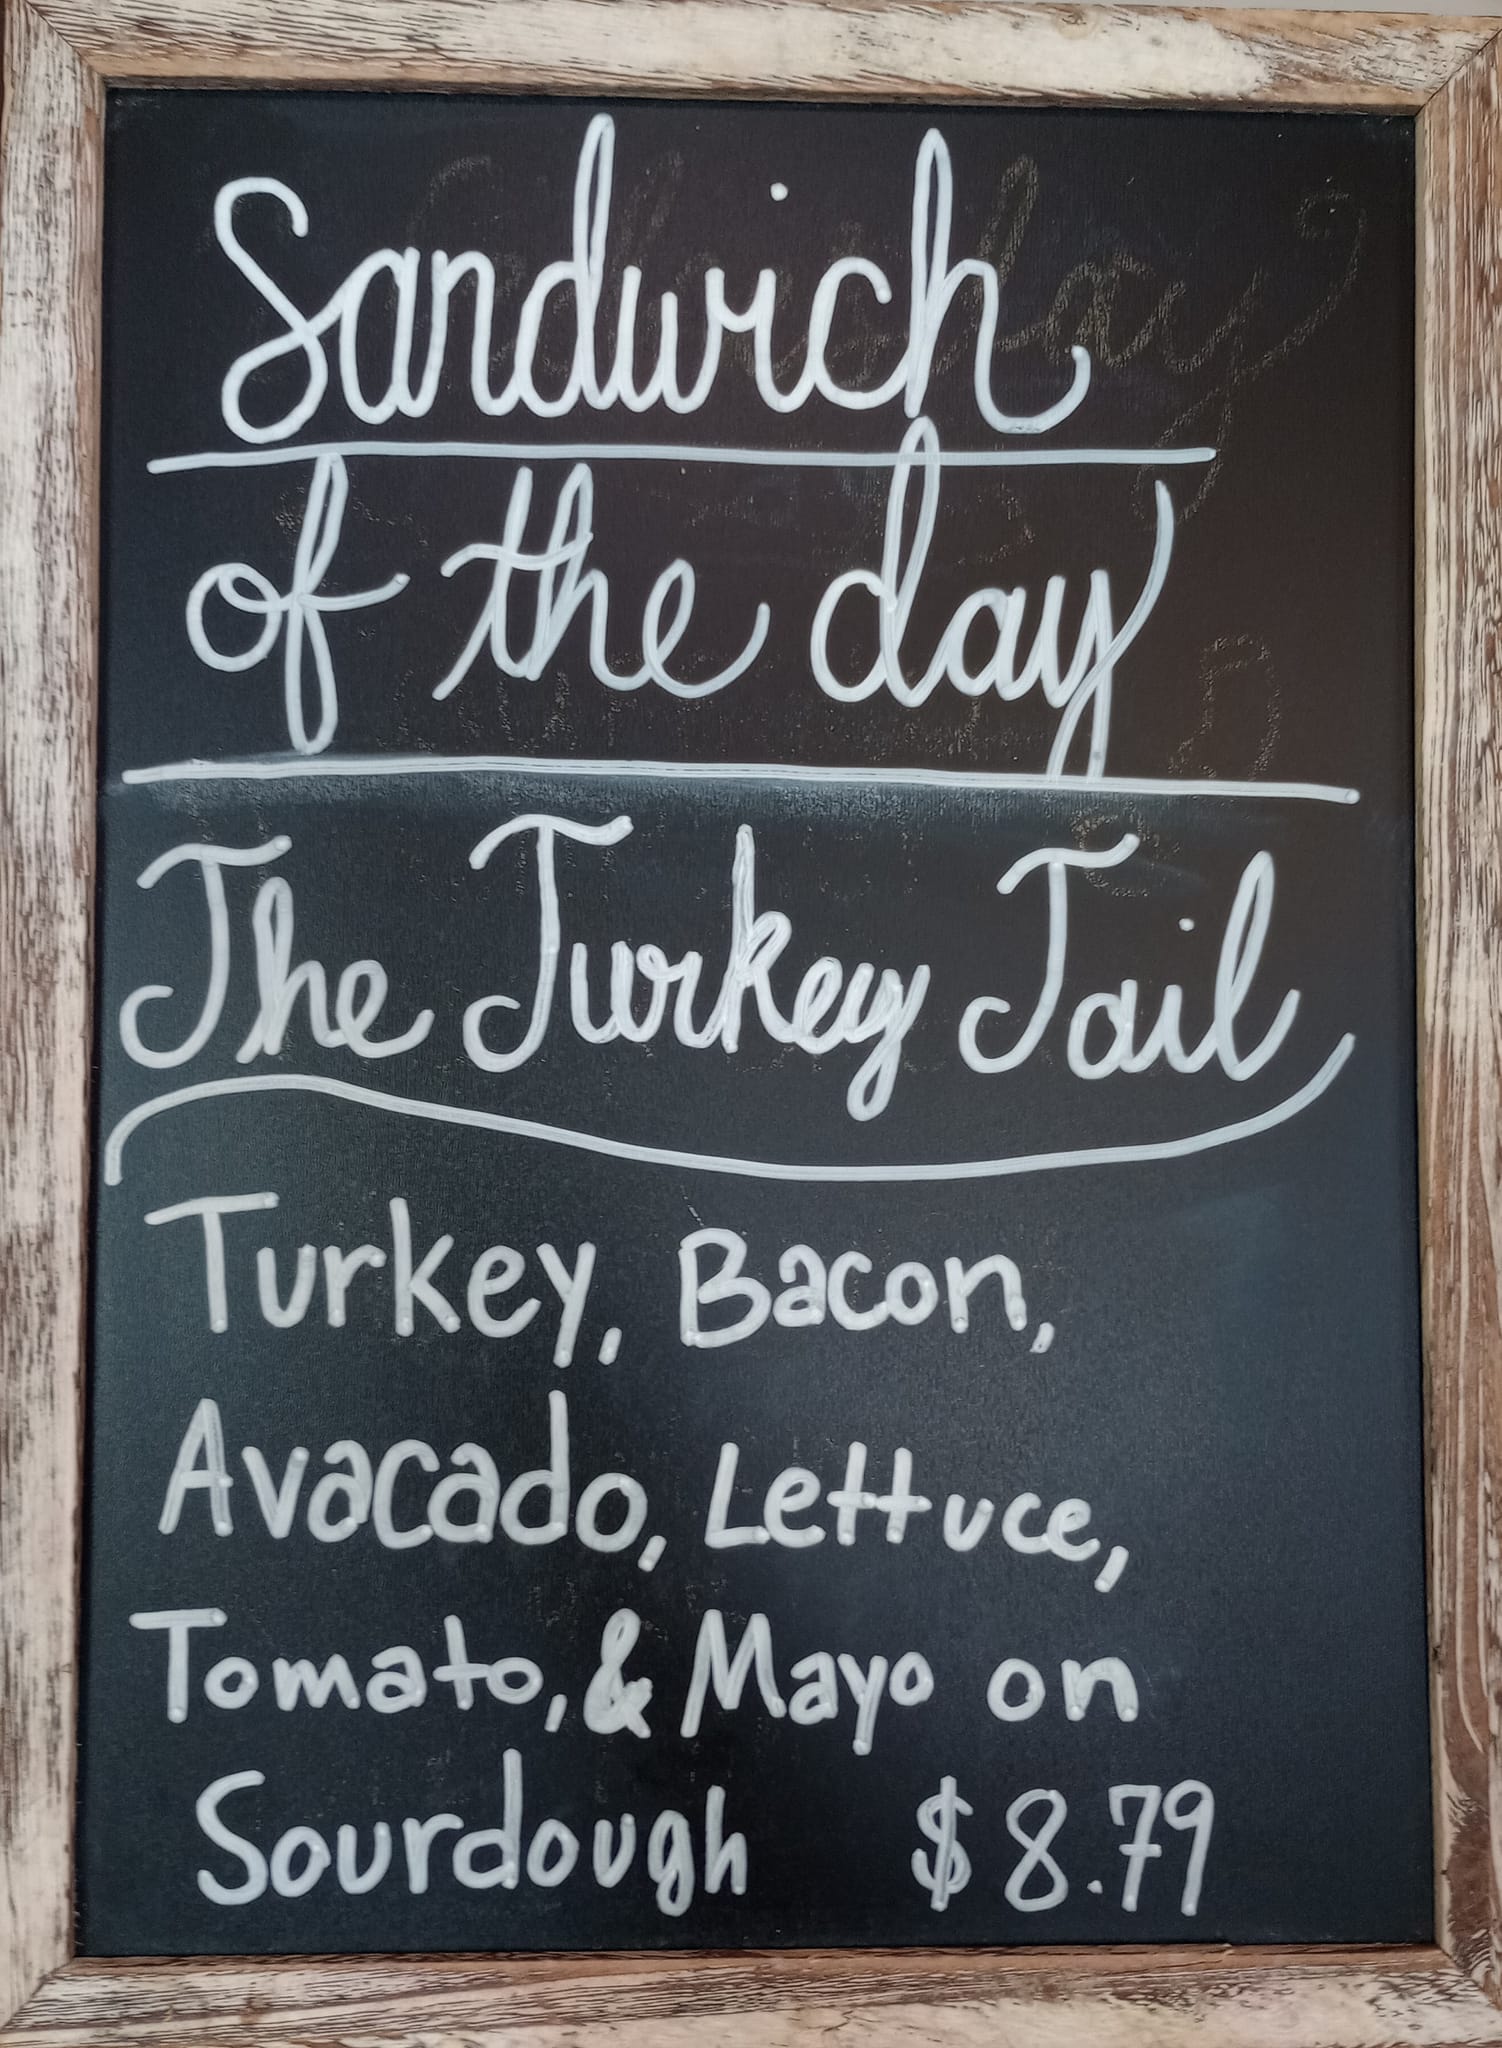 Sandwich
of the day
The Turkey Tail
Turkey, Bacon,
Avacado, Lettuce,
Tomato, & Mayo on
Sourdough $8.79